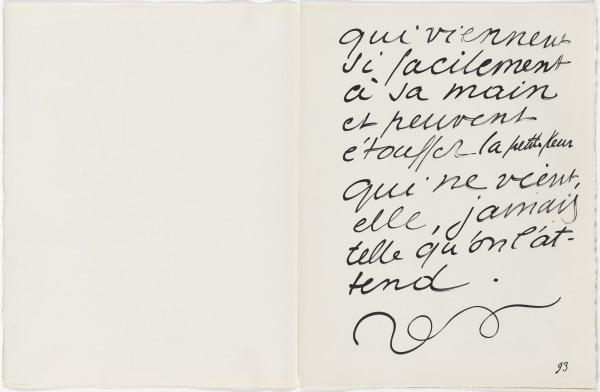 qui viennent
si facilement
à sa main
et peuvent
étouffer la petite fleur
qui ne vient,
elle, jamais
telle qu'on l'at-
tend.
93